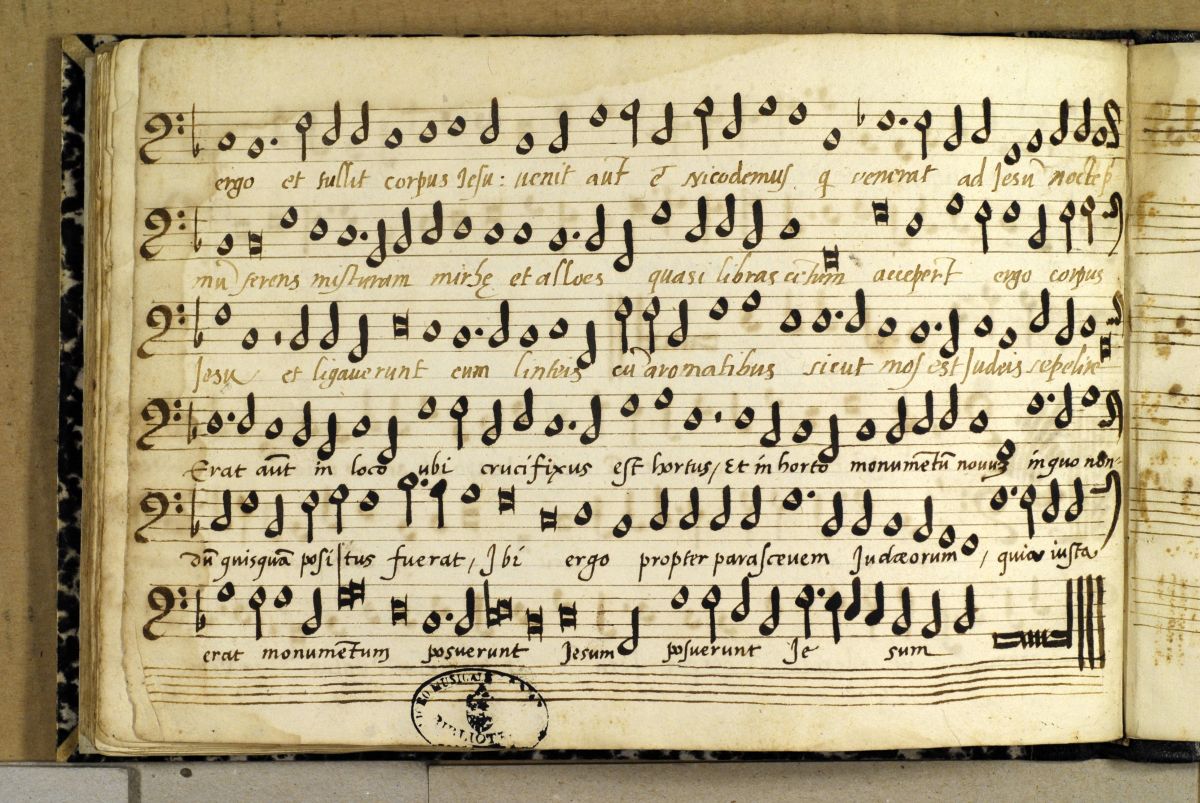 ergo et tullit corpus Jesu: venit aut̄ et̄ Nicodemus q̄ venerat ad Jesū nocte p̄
mū ferens misturam mirhę et alloes quasi libras cētum accepert̄ ergo corpus
Jesu et ligaverunt eum linteis cū aromatibus sicut mos est Judeis sepelire
Erat aut̄ in loco ubi crucifixus est hortus, Et in horto monumētū novuz in quo non-
dū quisquā positus fuerat, Ibi ergo propter parascevem Judæorum, quia iuxta
erat monumētum posverunt Jesum posverunt Je sum
MUSICALE
BIBLIOT